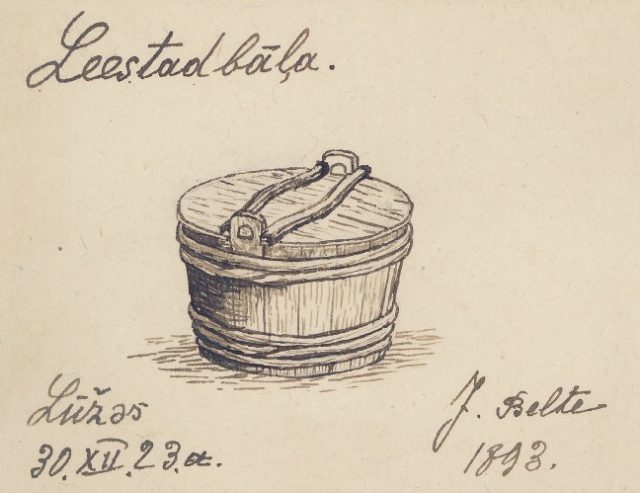 Leestadbāļa.
Lūžəs
30.XII.23.a.
J. Belte
1893.